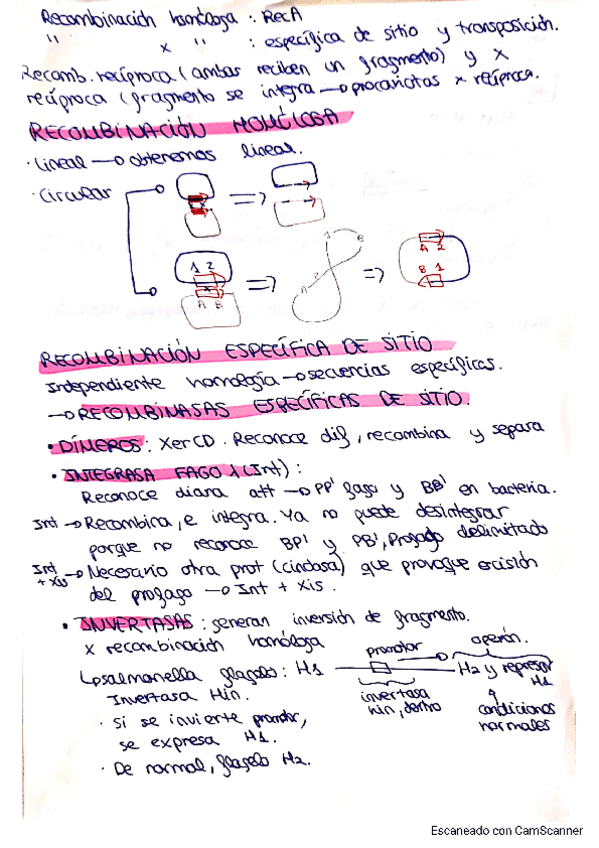 Recombinación homóloga : RecA
" x " : específica de sitio y transposición.
Recomb. recíproca (ambas reciben un fragmento) y x
recíproca (fragmento se integra → procariotas x recíproca.
RECOMBINACIÓN HOMÓLOGA
· Lineal → obtenemos lineal.
· Circular
1 2
A B
1 B
A 2
A 2
B 1
RECOMBINACIÓN ESPECÍFICA DE SITIO
Independiente homología → secuencias específicas.
→ RECOMBINASAS ESPECÍFICAS DE SITIO.
• DÍMEROS: XerCD. Reconoce dif, recombina y separa
• INTEGRASA FAGO λ (Int):
Reconoce diana att → PP' fago y BB' en bacteria.
Int → Recombina, e integra. Ya no puede desintegrar
porque no reconoce BP' y PB', Profago delimitado
Int + Xis → Necesario otra prot (cindasa) que provoque escisión
del profago → Int + Xis.
• INVERTASAS: generan inversión de fragmento.
x recombinación homóloga
↳ salmonella flagelo: H1
Invertasa Hin.
· si se invierte promotor,
se expresa H1.
· De normal, flagelo H2.
promotor operón.
H2 y represor H1
invertasa hin, dentro
condiciones normales
Escaneado con CamScanner